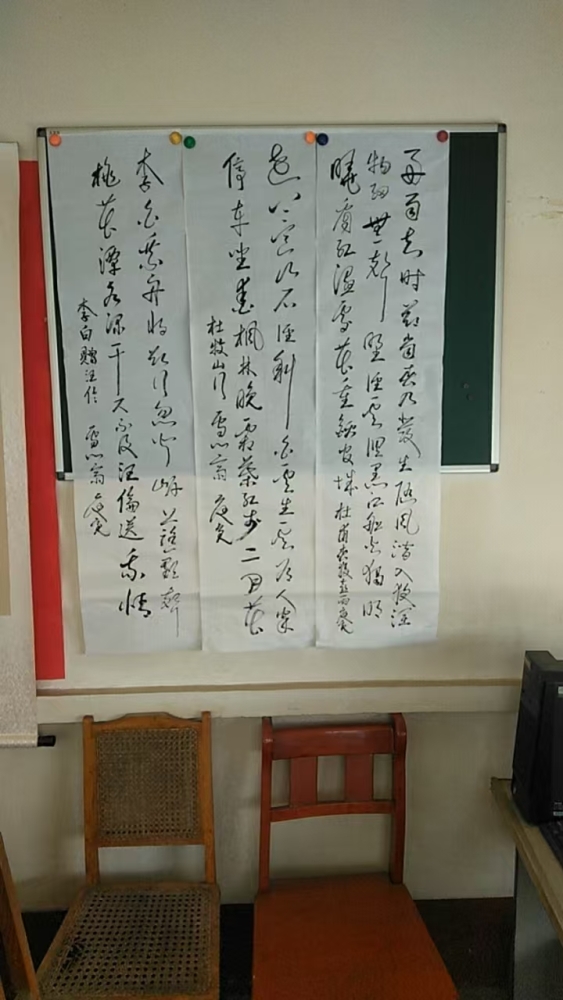 好雨知时节当春乃发生随风潜入夜润
物细无声野径云俱黑江船火独明
晓看红湿处花重锦官城 杜甫春夜喜雨
远上寒山石径斜白云生处有人家
停车坐爱枫林晚霜叶红于二月花
杜牧山行
李白乘舟将欲行忽闻岸上踏歌声
桃花潭水深千尺不及汪伦送我情
李白赠汪伦